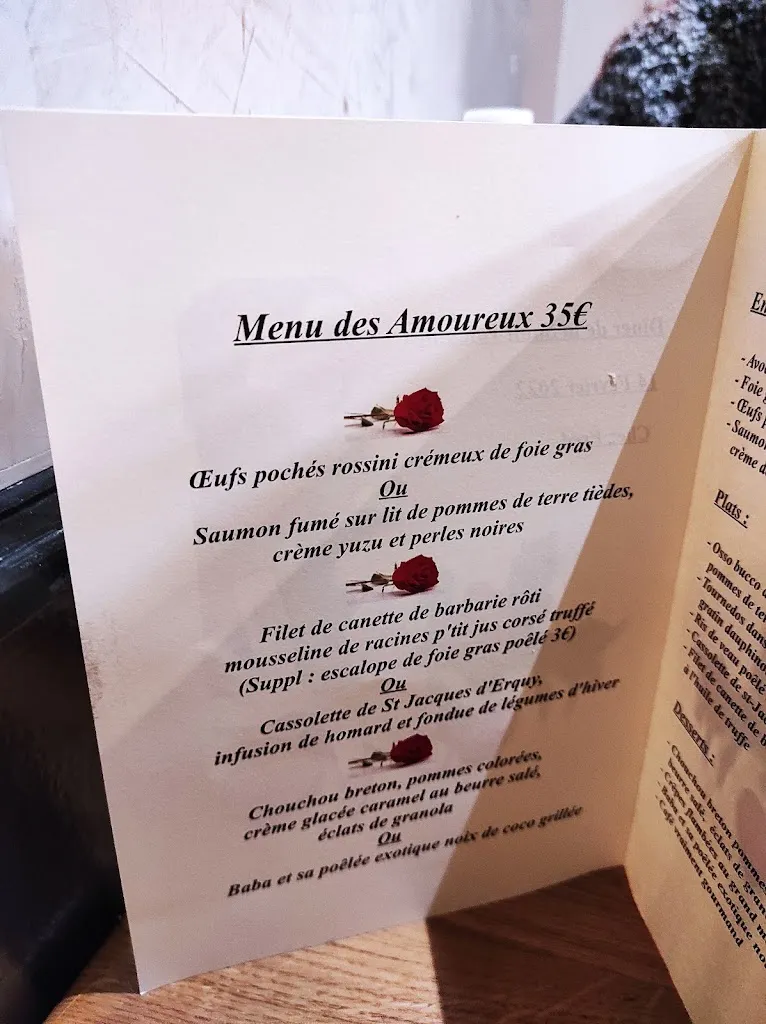 Menu des Amoureux 35€
Œufs pochés rossini crémeux de foie gras
Ou
Saumon fumé sur lit de pommes de terre tièdes,
crème yuzu et perles noires
Filet de canette de barbarie rôti
mousseline de racines p'tit jus corsé truffé
(Suppl : escalope de foie gras poêlé 3€)
Ou
Cassolette de St Jacques d'Erquy,
infusion de homard et fondue de légumes d'hiver
Chouchou breton, pommes colorées,
crème glacée caramel au beurre salé,
éclats de granola
Ou
Baba et sa poêlée exotique noix de coco grillée
- Foie
- Œufs
- Saumon
crème
Plats :
- Osso bucco
pommes de
- Tournedos dans
gratin dauphinois
- Ris de veau poêlé
- Cassolette de st-Ja
- Filet de canette de b
à l'huile de truffe
Desserts :
- Chouchou breton pommes
beurre salé, éclats de gran
- Crêpes flambées au grand m
- Baba et sa poêlée exotique no
- Café vraiment gourmand